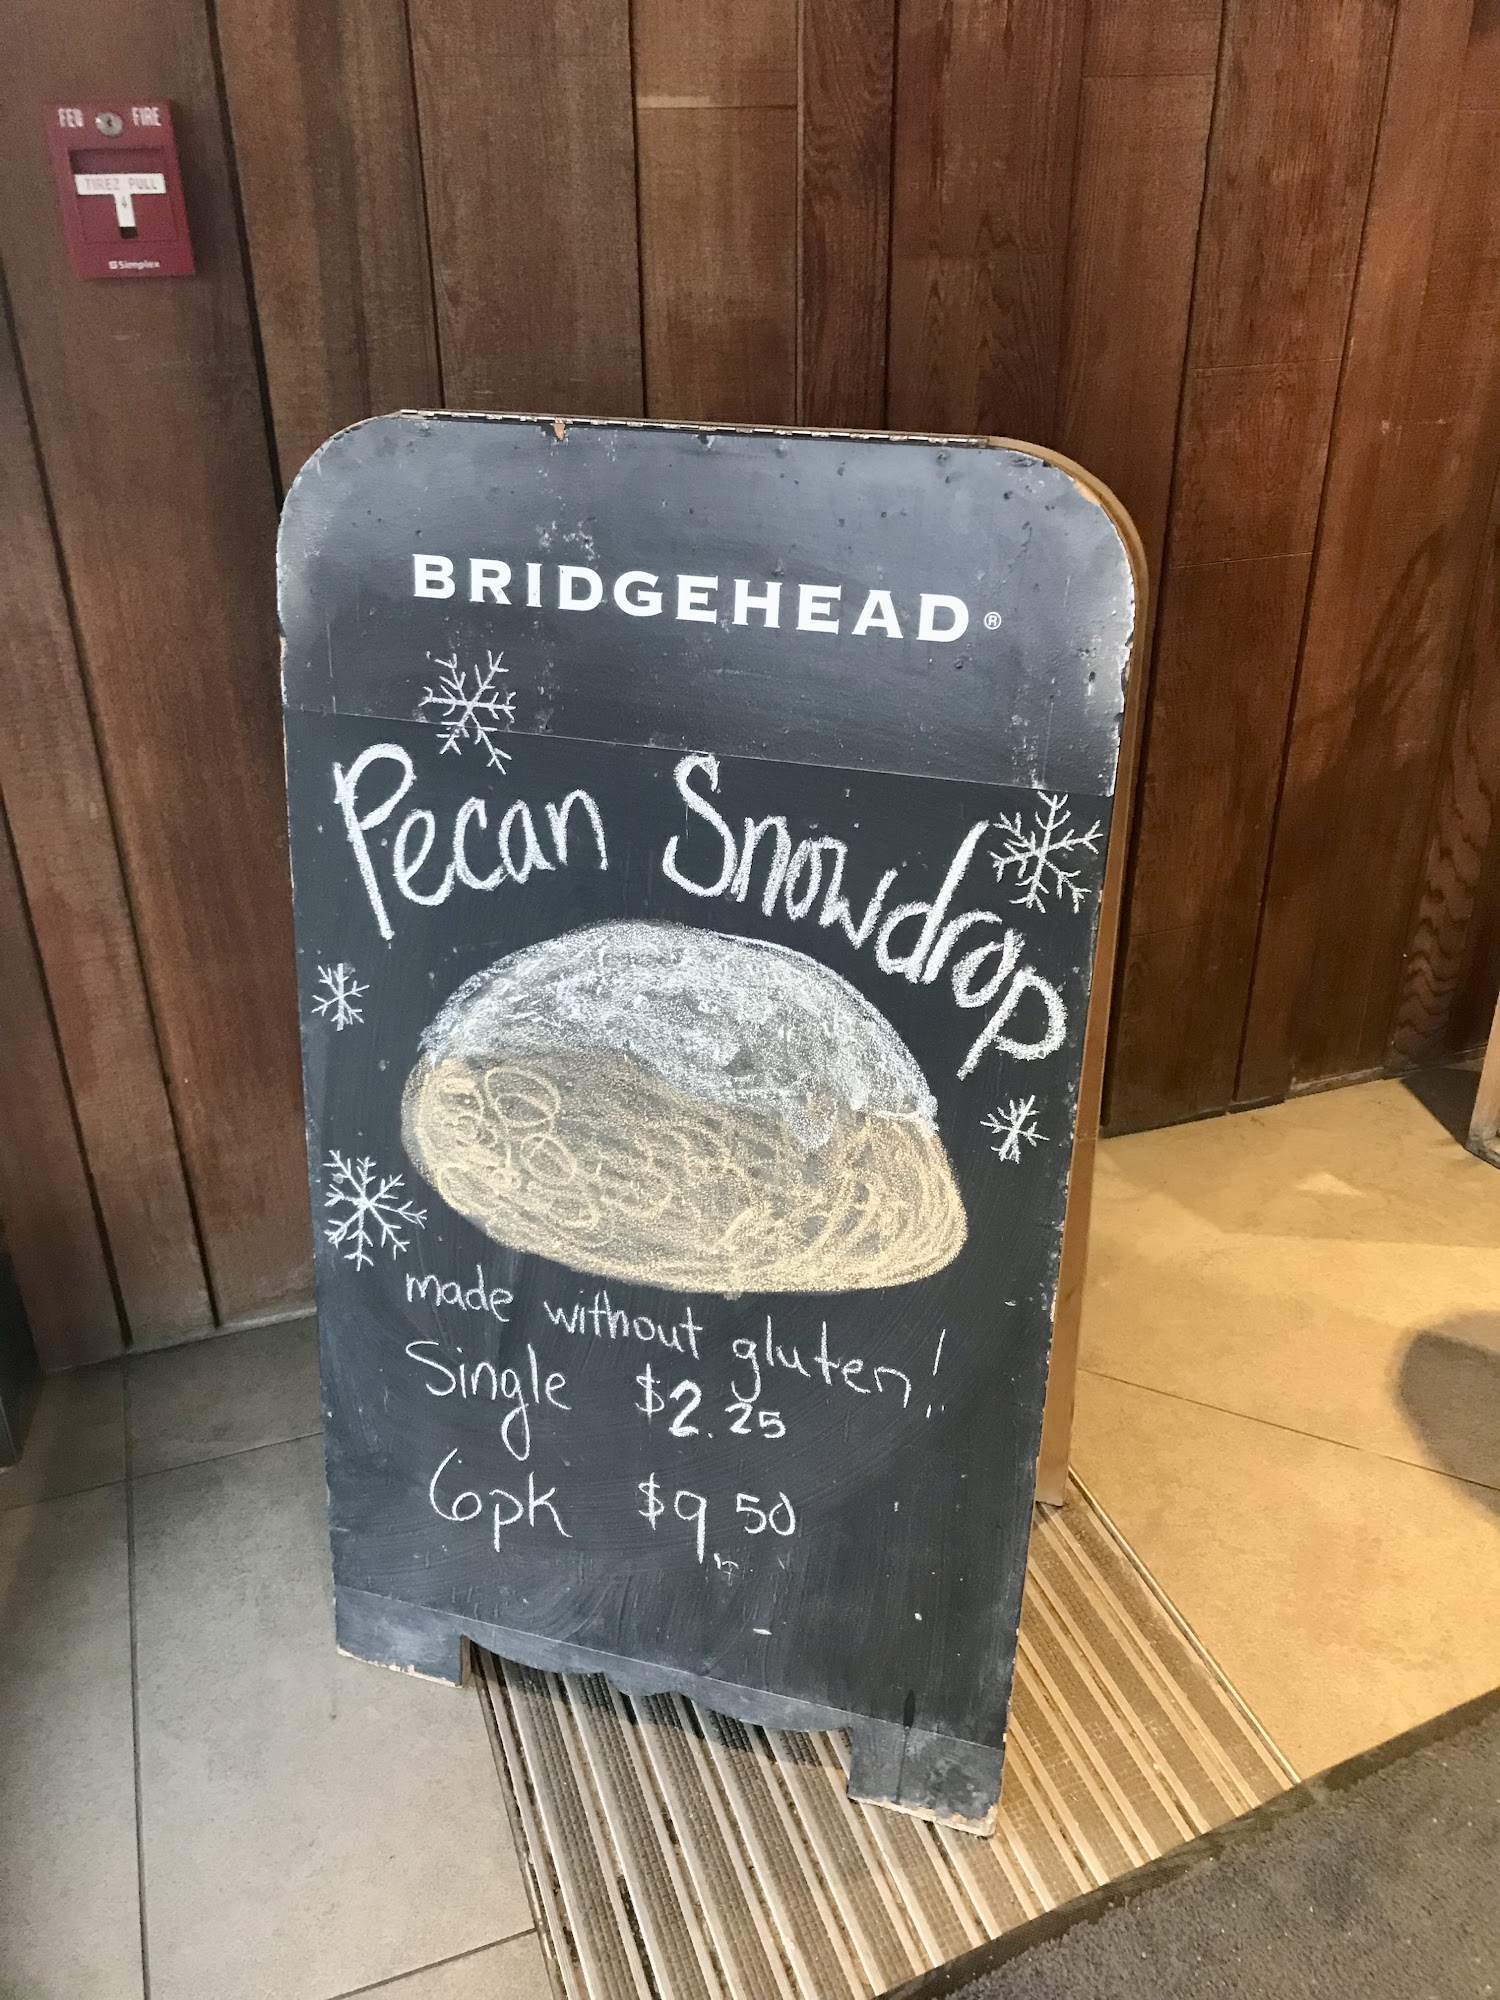 FEU FIRE
TIREZ PULL
Simplex
BRIDGEHEAD®
Pecan Snowdrop
made without gluten!
Single $2.25
6pk $9.50